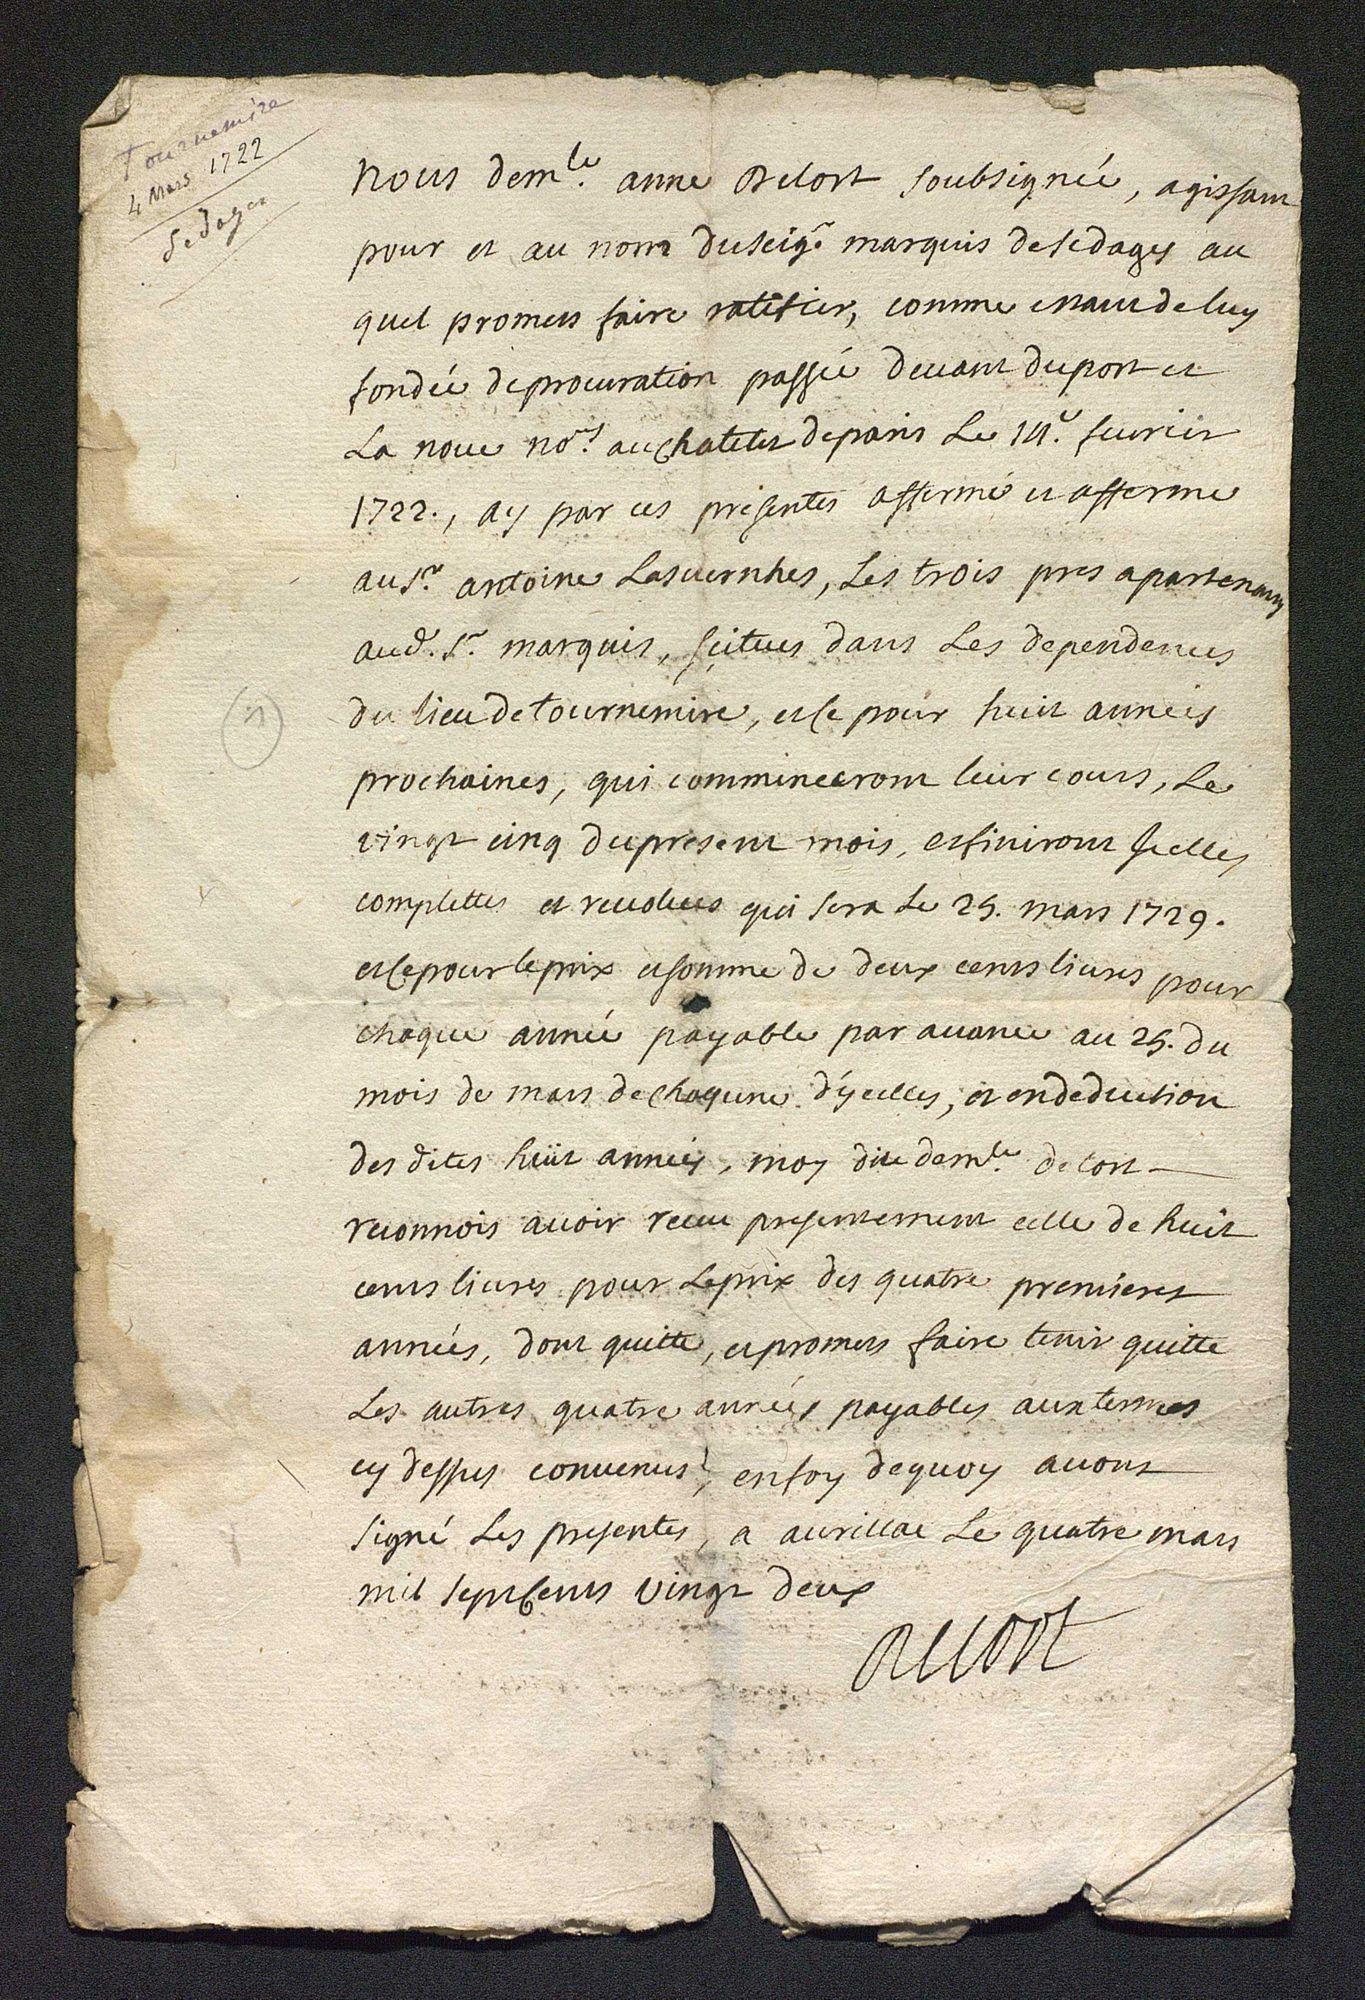 Tournemire
4 Mars 1722
Sedages
Nous dem.le anne Delort soubsignée, agissant
pour et au nom du seig.r marquis de sedages au
quel promets faire ratifier, comme estant de luy
fondée de procuration passée devant duport et
La noue no.rs au chatelet de paris Le fevrier
1722., ay par ces presentes affermé et afferme
au s.r antoine Lasvernhes, Les trois pres apartenans
aud. s.r marquis, scitues dans Les dependences
du lieu de tournemire, et ce pour huit années
prochaines, qui commenceront leur cours, Le
vingt cinq du present mois, et finiront jcelles
complettes et revolues qui sera Le 25. mars 1729.
et ce pour le prix et somme de deux cents livres pour
chaque année payable par avance au 25. du
mois de mars de chaqune d'ycelles, et en deduction
des dites huit années, moy dite dem.le delort
reconnois avoir receu presentement celle de huit
cents livres pour Le prix des quatre premieres
années, dont quitte, et promets faire tenir quitte
Les autres quatre années payables aux termes
cy dessus convenus, en foy de quoy avons
signé Les presentes, a aurillac Le quatre mars
mil sept cents vingt deux
Delort